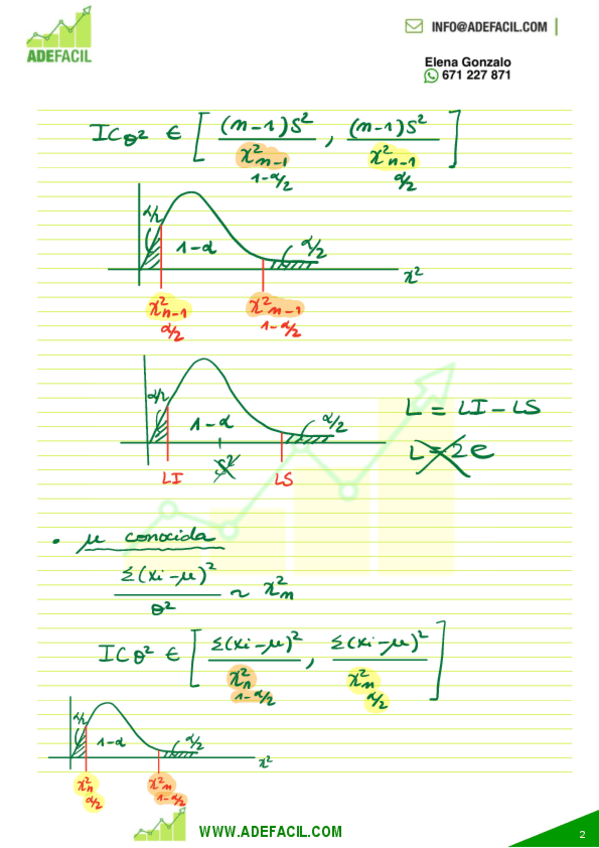 INFO@ADEFACIL.COM
ADEFACIL
Elena Gonzalo
671 227 871
ICθ² ∈ [ (n-1)S² / χ²n-1 1-α/2 , (n-1)S² / χ²n-1 α/2 ]
α/2
1-α
α/2
χ²
χ²n-1 α/2
χ²n-1 1-α/2
α/2
1-α
α/2
S²
LI
LS
L = LI - LS
L = 2e
• μ conocida
Σ(xi-μ)² / θ² ~ χ²n
ICθ² ∈ [ Σ(xi-μ)² / χ²n 1-α/2 , Σ(xi-μ)² / χ²n α/2 ]
α/2
1-α
α/2
χ²
χ²n α/2
χ²n 1-α/2
WWW.ADEFACIL.COM
2